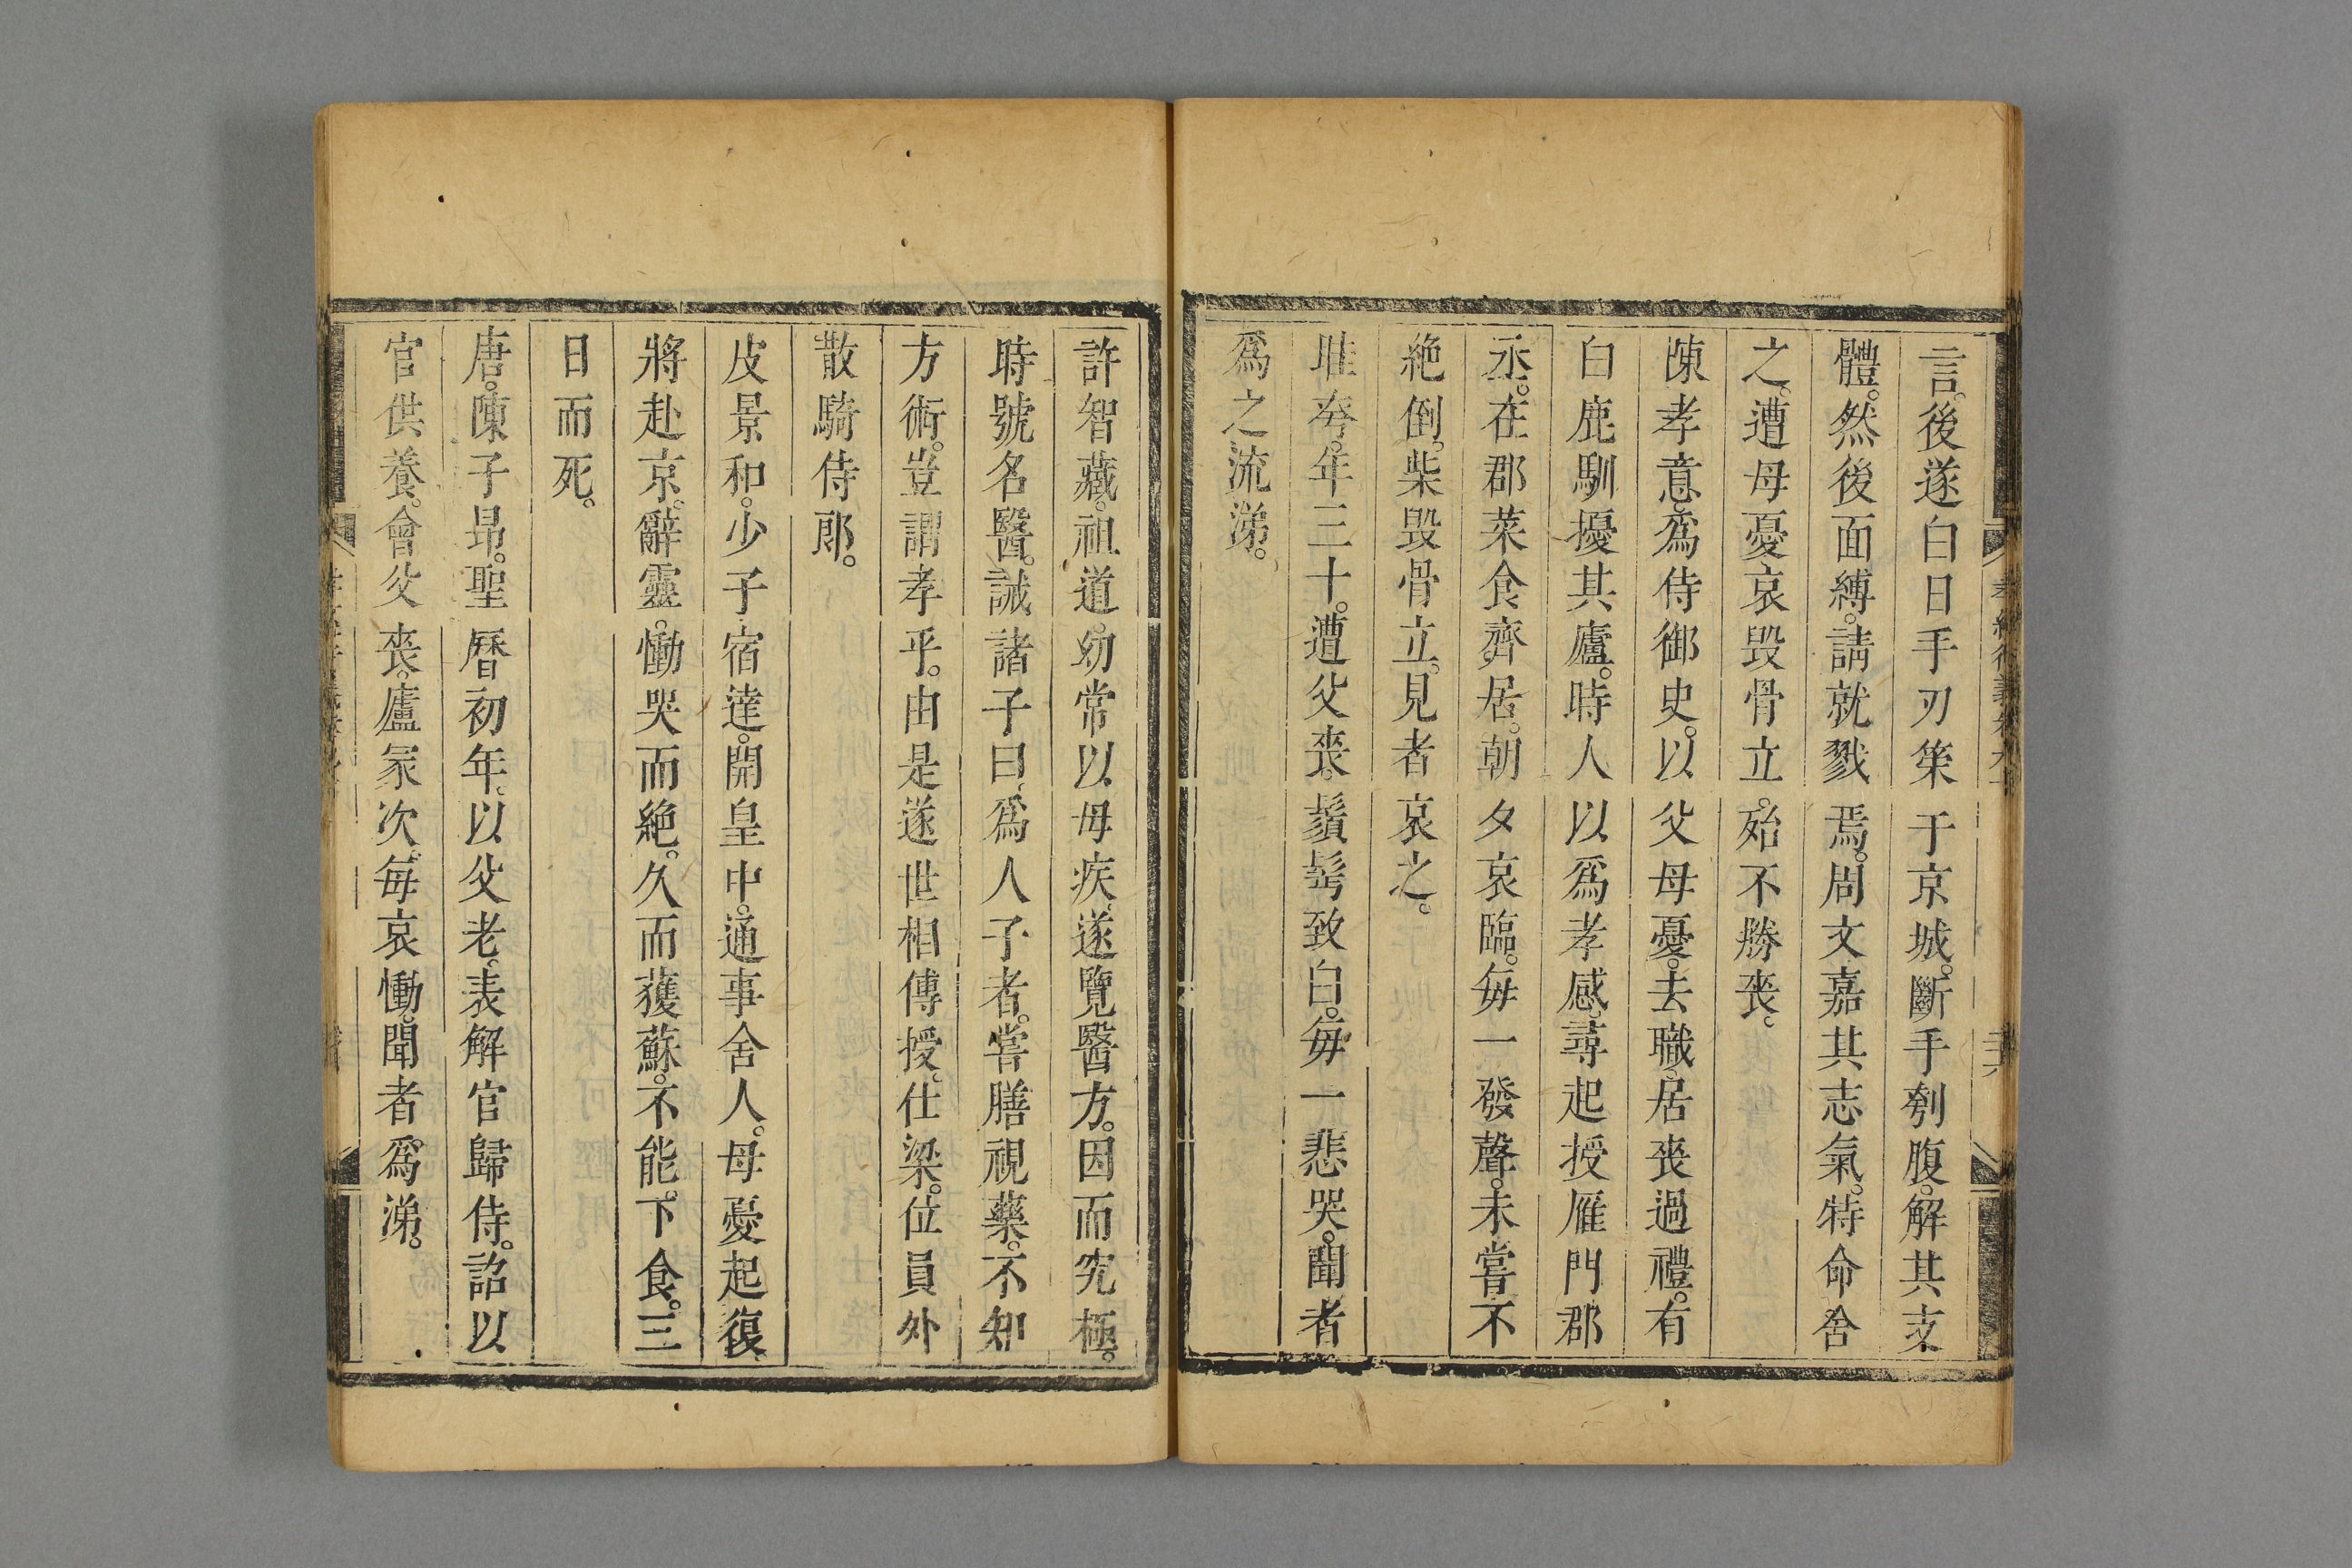 言。後遂白日手刃榘于京城。斷手刳腹。解其支
體。然後面縛。請就戮焉。周文嘉其志氣。特命舍
之。遭母憂哀毀骨立。殆不勝喪。
陳孝意。爲侍御史。以父母憂。去職。居喪過禮。有
白鹿馴擾其廬。時人以爲孝感。尋起授雁門郡
丞。在郡菜食齊居。朝夕哀臨。每一發聲。未嘗不
絶倒。柴毀骨立。見者哀之。
眭夸。年三十。遭父喪。鬚髩致白。每一悲哭。聞者
爲之流涕。
許智藏。祖道。幼常以母疾。遂覽醫方。因而究極。
時號名醫。誡諸子曰。爲人子者。嘗膳視藥。不知
方術。豈謂孝乎。由是遂世相傳授。仕梁。位員外
散騎侍郎。
皮景和。少子宿達。開皇中。通事舍人。母憂起復。
將赴京。辭靈。慟哭而絶。久而獲蘇。不能下食。三
日而死。
唐。陳子昻。聖曆初年。以父老。表解官歸侍。詔以
官供養。會父喪。廬冢次。每哀慟。聞者爲涕。